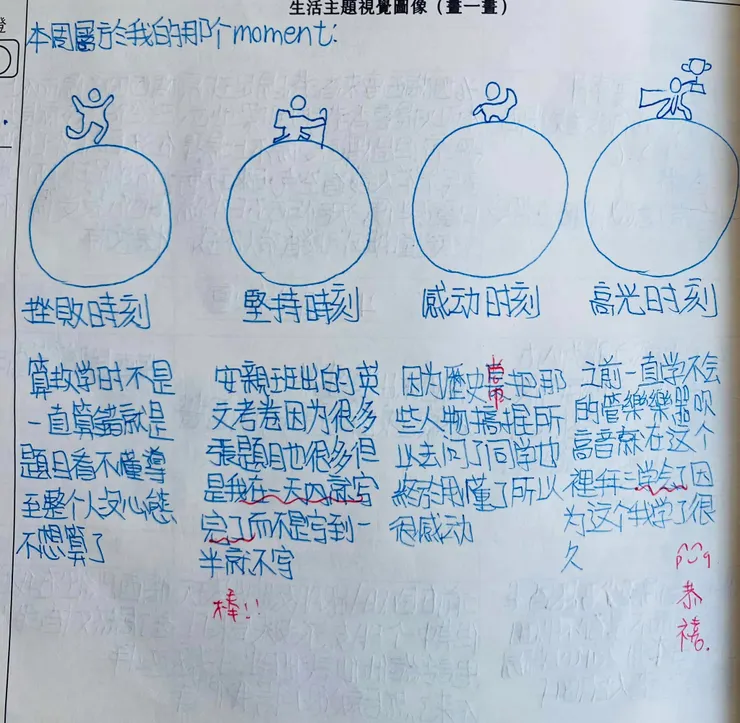 生活主題視覺圖像（畫一畫）
本周屬於我的那个moment:
挫敗時刻
堅持時刻
感动时刻
高光时刻
算教学时不是
一直算錯就是
題目看不懂導
至整个人心態
不想算了
安親班出的英
文考卷因為很多
張題目也很多但
是我在一天內就写
完了而不是写到一
半就不写
棒!!
因为歷史常把那
些人物搞混所
以去问了同学也
終於我懂了所以
很感动
之前一直学不会
的管樂樂器吹
高音在这个
禮拜三学会了因
为这个我学了很
久
恭
禧.